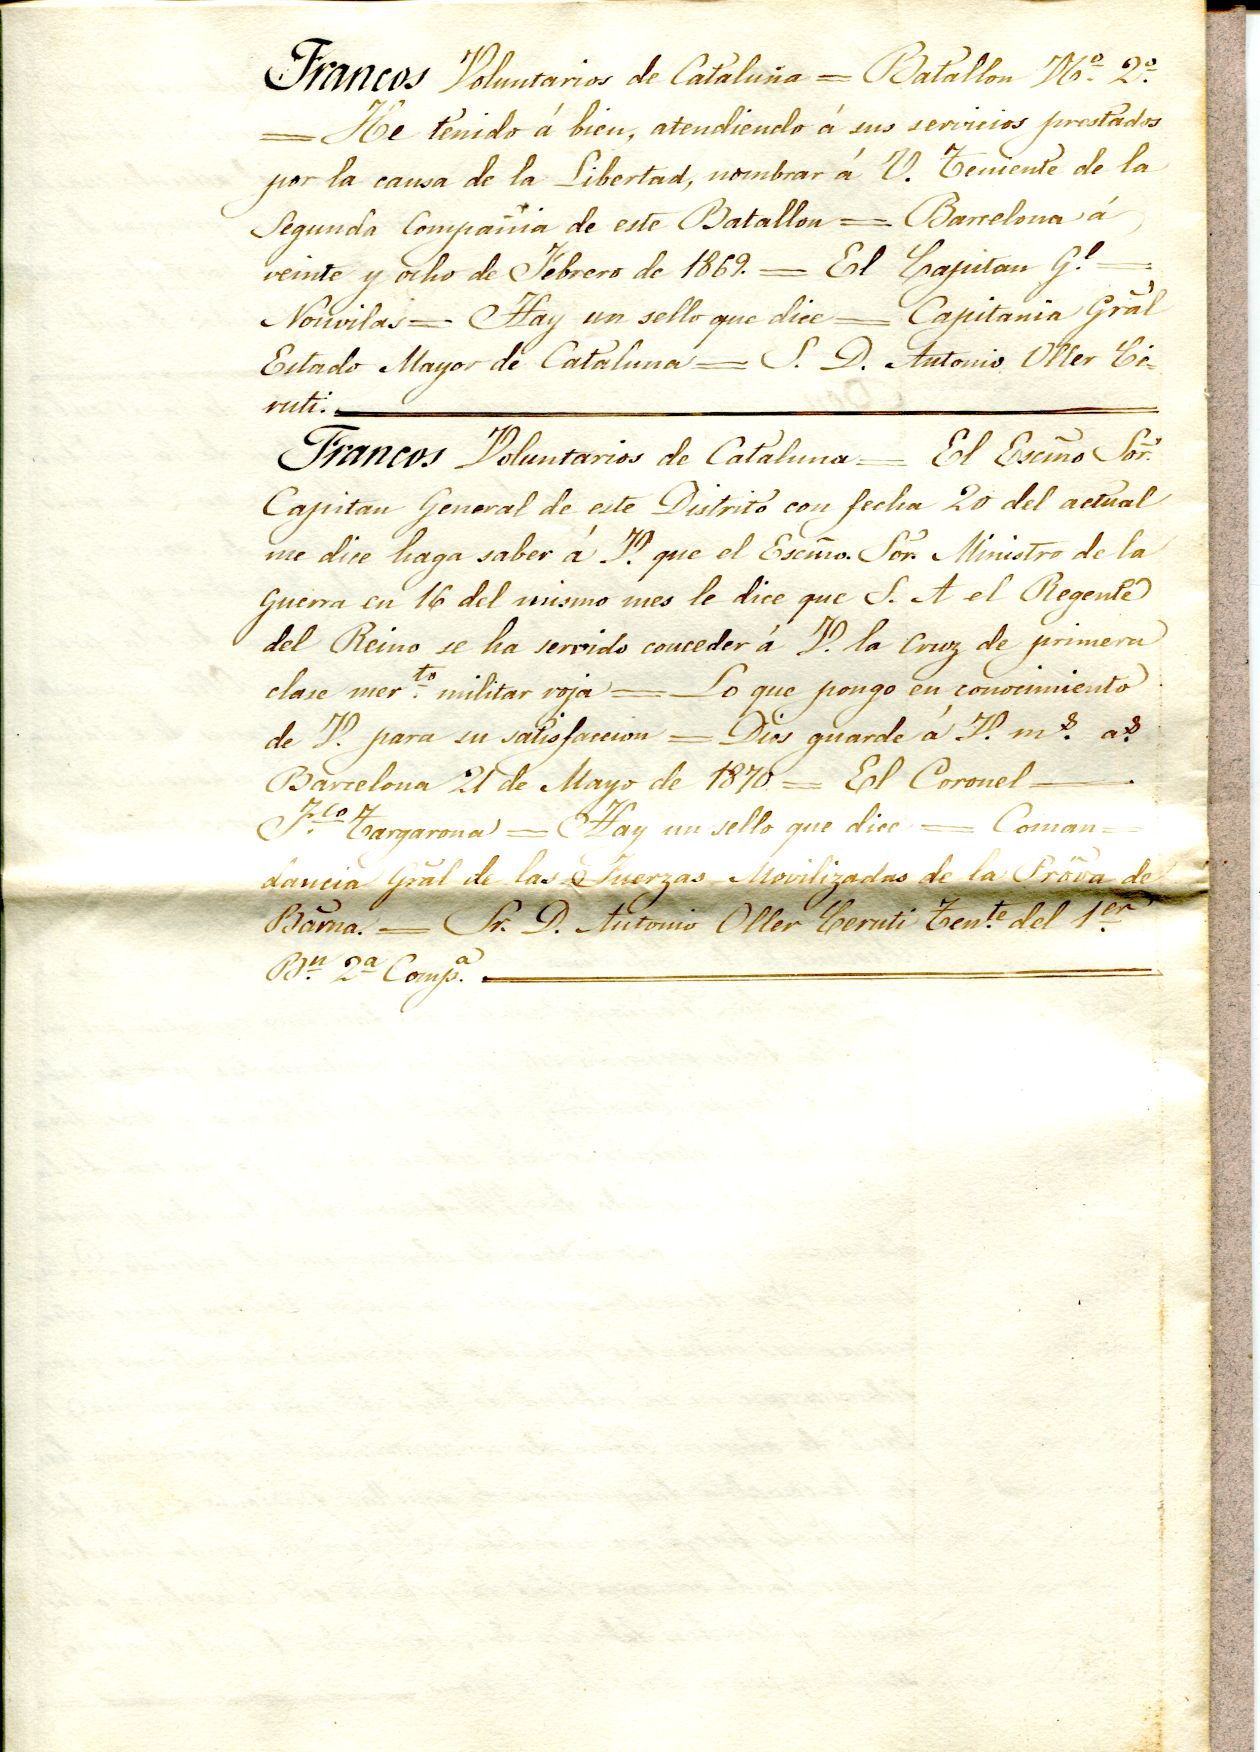 Francos Voluntarios de Cataluña = Batallon No. 2º.
= He tenido á bien, atendiendo á sus servicios prestados
por la causa de la Libertad, nombrar á V. Teniente de la
Segunda Compañia de este Batallon = Barcelona á
veinte y ocho de Febrero de 1869. = El Capitan Gl. =
Nouvilas = Hay un sello que dice = Capitania Grãl
Estado Mayor de Cataluna = S. D. Antonio Oller Ce-
ruti.
Francos Voluntarios de Cataluna = El Escm̃o Sor̃.
Capitan General de este Distrito con fecha 20 del actual
me dice haga saber á V. que el Escm̃o. Sor̃. Ministro de la
Guerra en 16 del mismo mes le dice que S. A el Regente
del Reino se ha servido conceder á V. la Cruz de primera
clase mer.to militar roja = Lo que pongo en conocimiento
de V. para su satisfaccion = Dios guarde á V. ms. as.
Barcelona 21 de Mayo de 1870 = El Coronel
F.co Targarona = Hay un sello que dice = Coman=
dancia Grãl de las Fuerzas Movilizadas de la Proṽa de
Barña. = Sr. D. Antonio Oller Ceruti Ten.te del 1.er
Bn. 2ª Comp.a